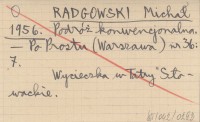 RADGOWSKI Michał
1956. Podróż konwencjonalna.
— Po Prostu (Warszawa) nr 36:
7.
Wycieczka w Tatry Sło-
wackie.